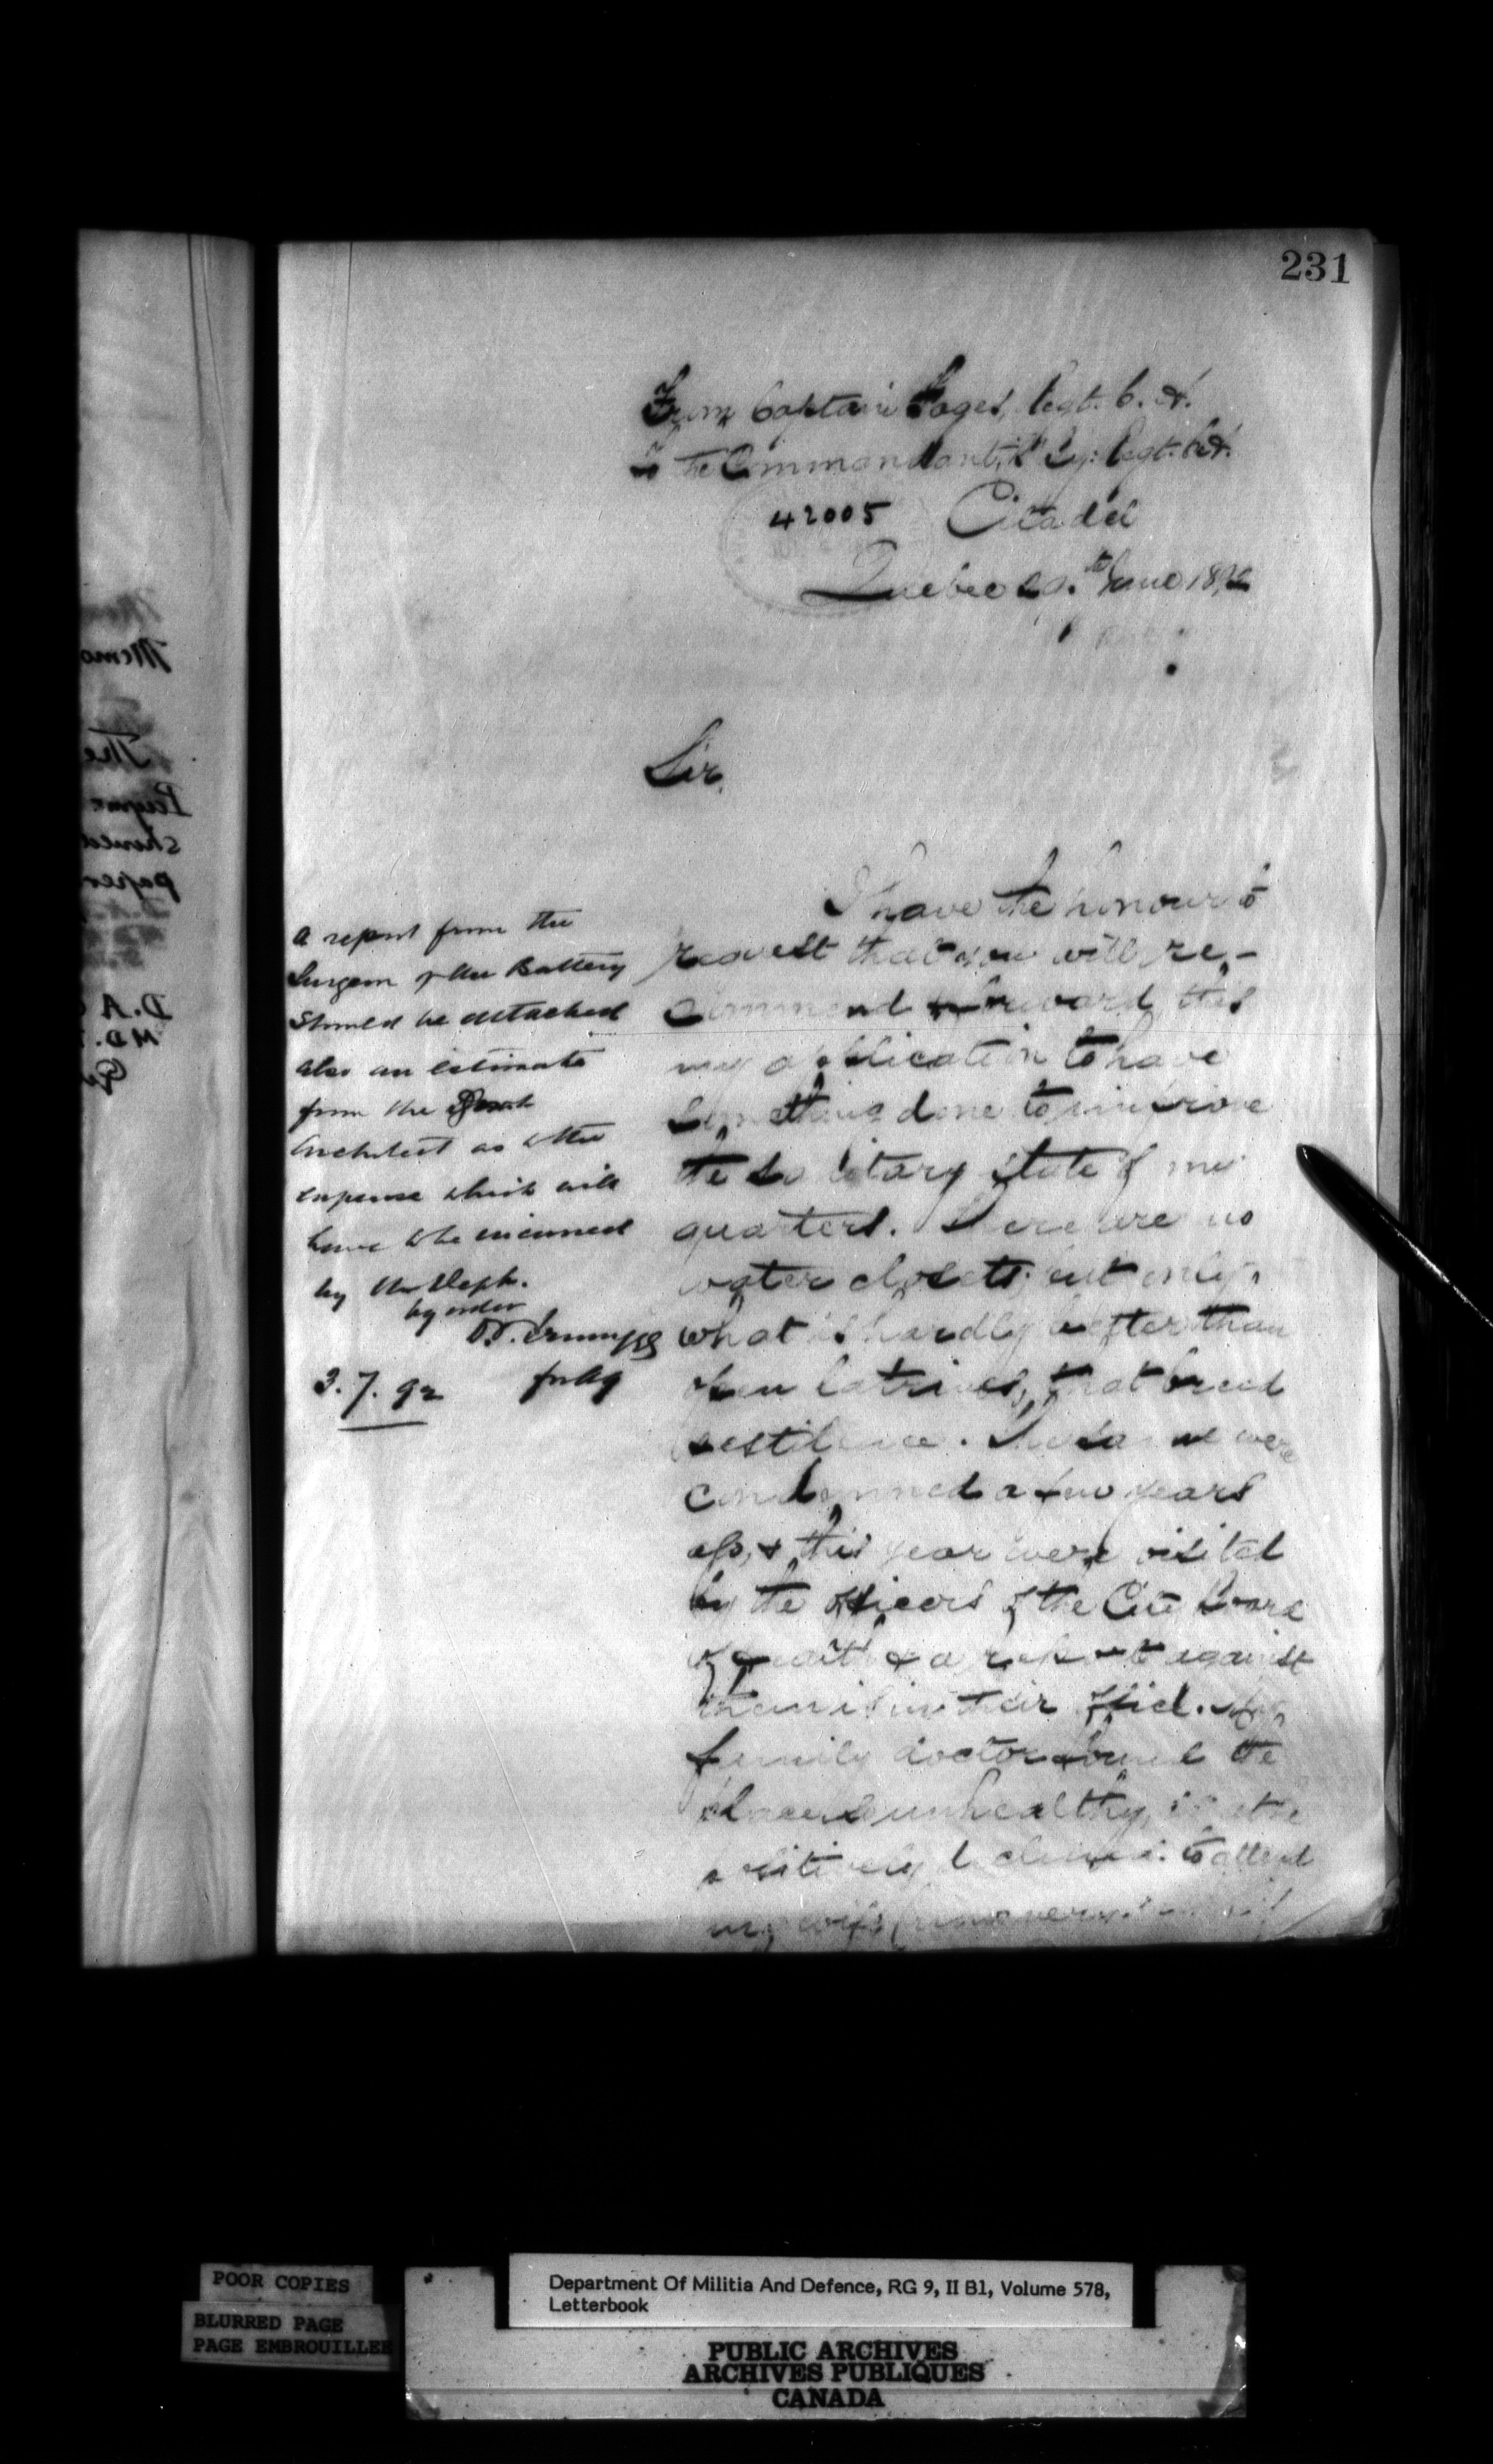 231
From Captain Pages, Regt. C. A.
To the Commandant, R. Sy: Regt. C.A.
42005 Citadel
Quebec 20.th June 1892
Sir,
I have the honour to
request that you will re-
commend & forward this
my application to have
something done to improve
the sanitary state of my
quarters. There are no
water closets, but only,
what is hardly better than
open latrines, that breed
pestilence. These were
condemned a few years
ago, & this year were visited
by the officers of the City Board
of Health & a report against
them is in their office. My
family doctor found the
place so unhealthy, that he
positively declined to attend
my wife
A report from the
Surgeon of the Battery
should be attached
also an estimate
from the
Architect as to the
expense which will
have to be incurred
by the Dept.
by order
for AG
3. 7. 92
Memo
The
should
paper
D. A
M D.
POOR COPIES
BLURRED PAGE
PAGE EMBROUILLEE
Department Of Militia And Defence, RG 9, II B1, Volume 578,
Letterbook
PUBLIC ARCHIVES
ARCHIVES PUBLIQUES
CANADA